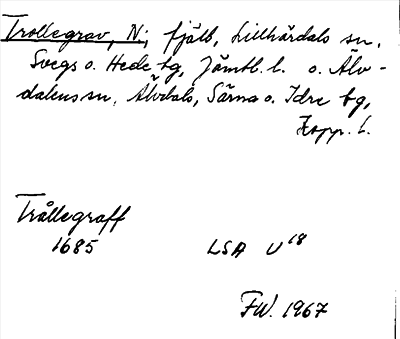 Trollegrav, N; fjälb, Lillhärdals sn,
Svegs o. Hede tg, Jämtl. l. o. Älv-
dalens sn, Älvdals, Särna o. Idre tg,
Kopp. l.
Trållegraff
1685 LSA U18
FW. 1967